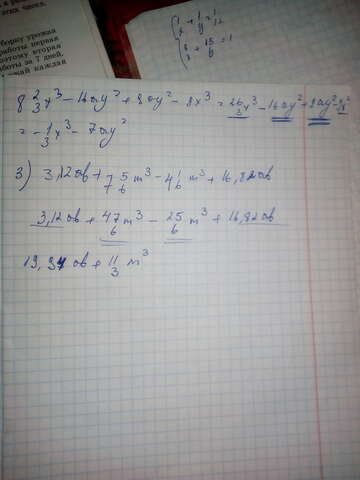 этих чисе.
сборку урожая
работы первая
поэтому вторая
боты за 7 дней.
каждая
1/x + 1/y = 1/12
8/x + 15/y = 1
8 2/3 x³ - 14ay² + 8ay² - 8x³ = 26/3 x³ - 14ay² + 8ay² - 8x³
= - 1/3 x³ - 7ay²
3) 3,12ab + 7 5/6 m³ - 4 1/6 m³ + 16,82ab
3,12ab + 47/6 m³ - 25/6 m³ + 16,82ab
19,94ab + 11/3 m³